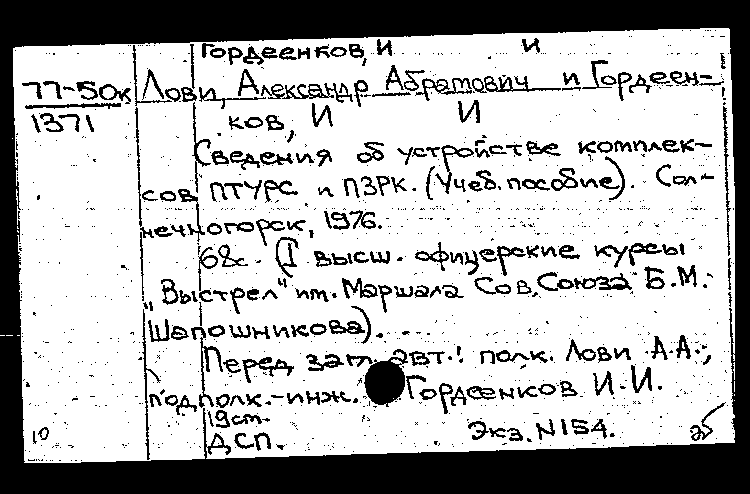 Гордеенков, И И
77-50к Лови, Александр Абрамович и Гордеен-
1371 ков, И И
Сведения об устройстве комплек-
сов ПТУРС и ПЗРК. (Учеб. пособие). Сол-
нечногорск, 1976.
68с. (I высш. офицерские курсы
„Выстрел" им. Маршала Сов. Союза Б.М.
Шапошникова).
Перед загл. авт.: полк. Лови А.А.,
подполк.-инж. Гордеенков И.И.
19см.
ДСП. Экз. N154.
10 25